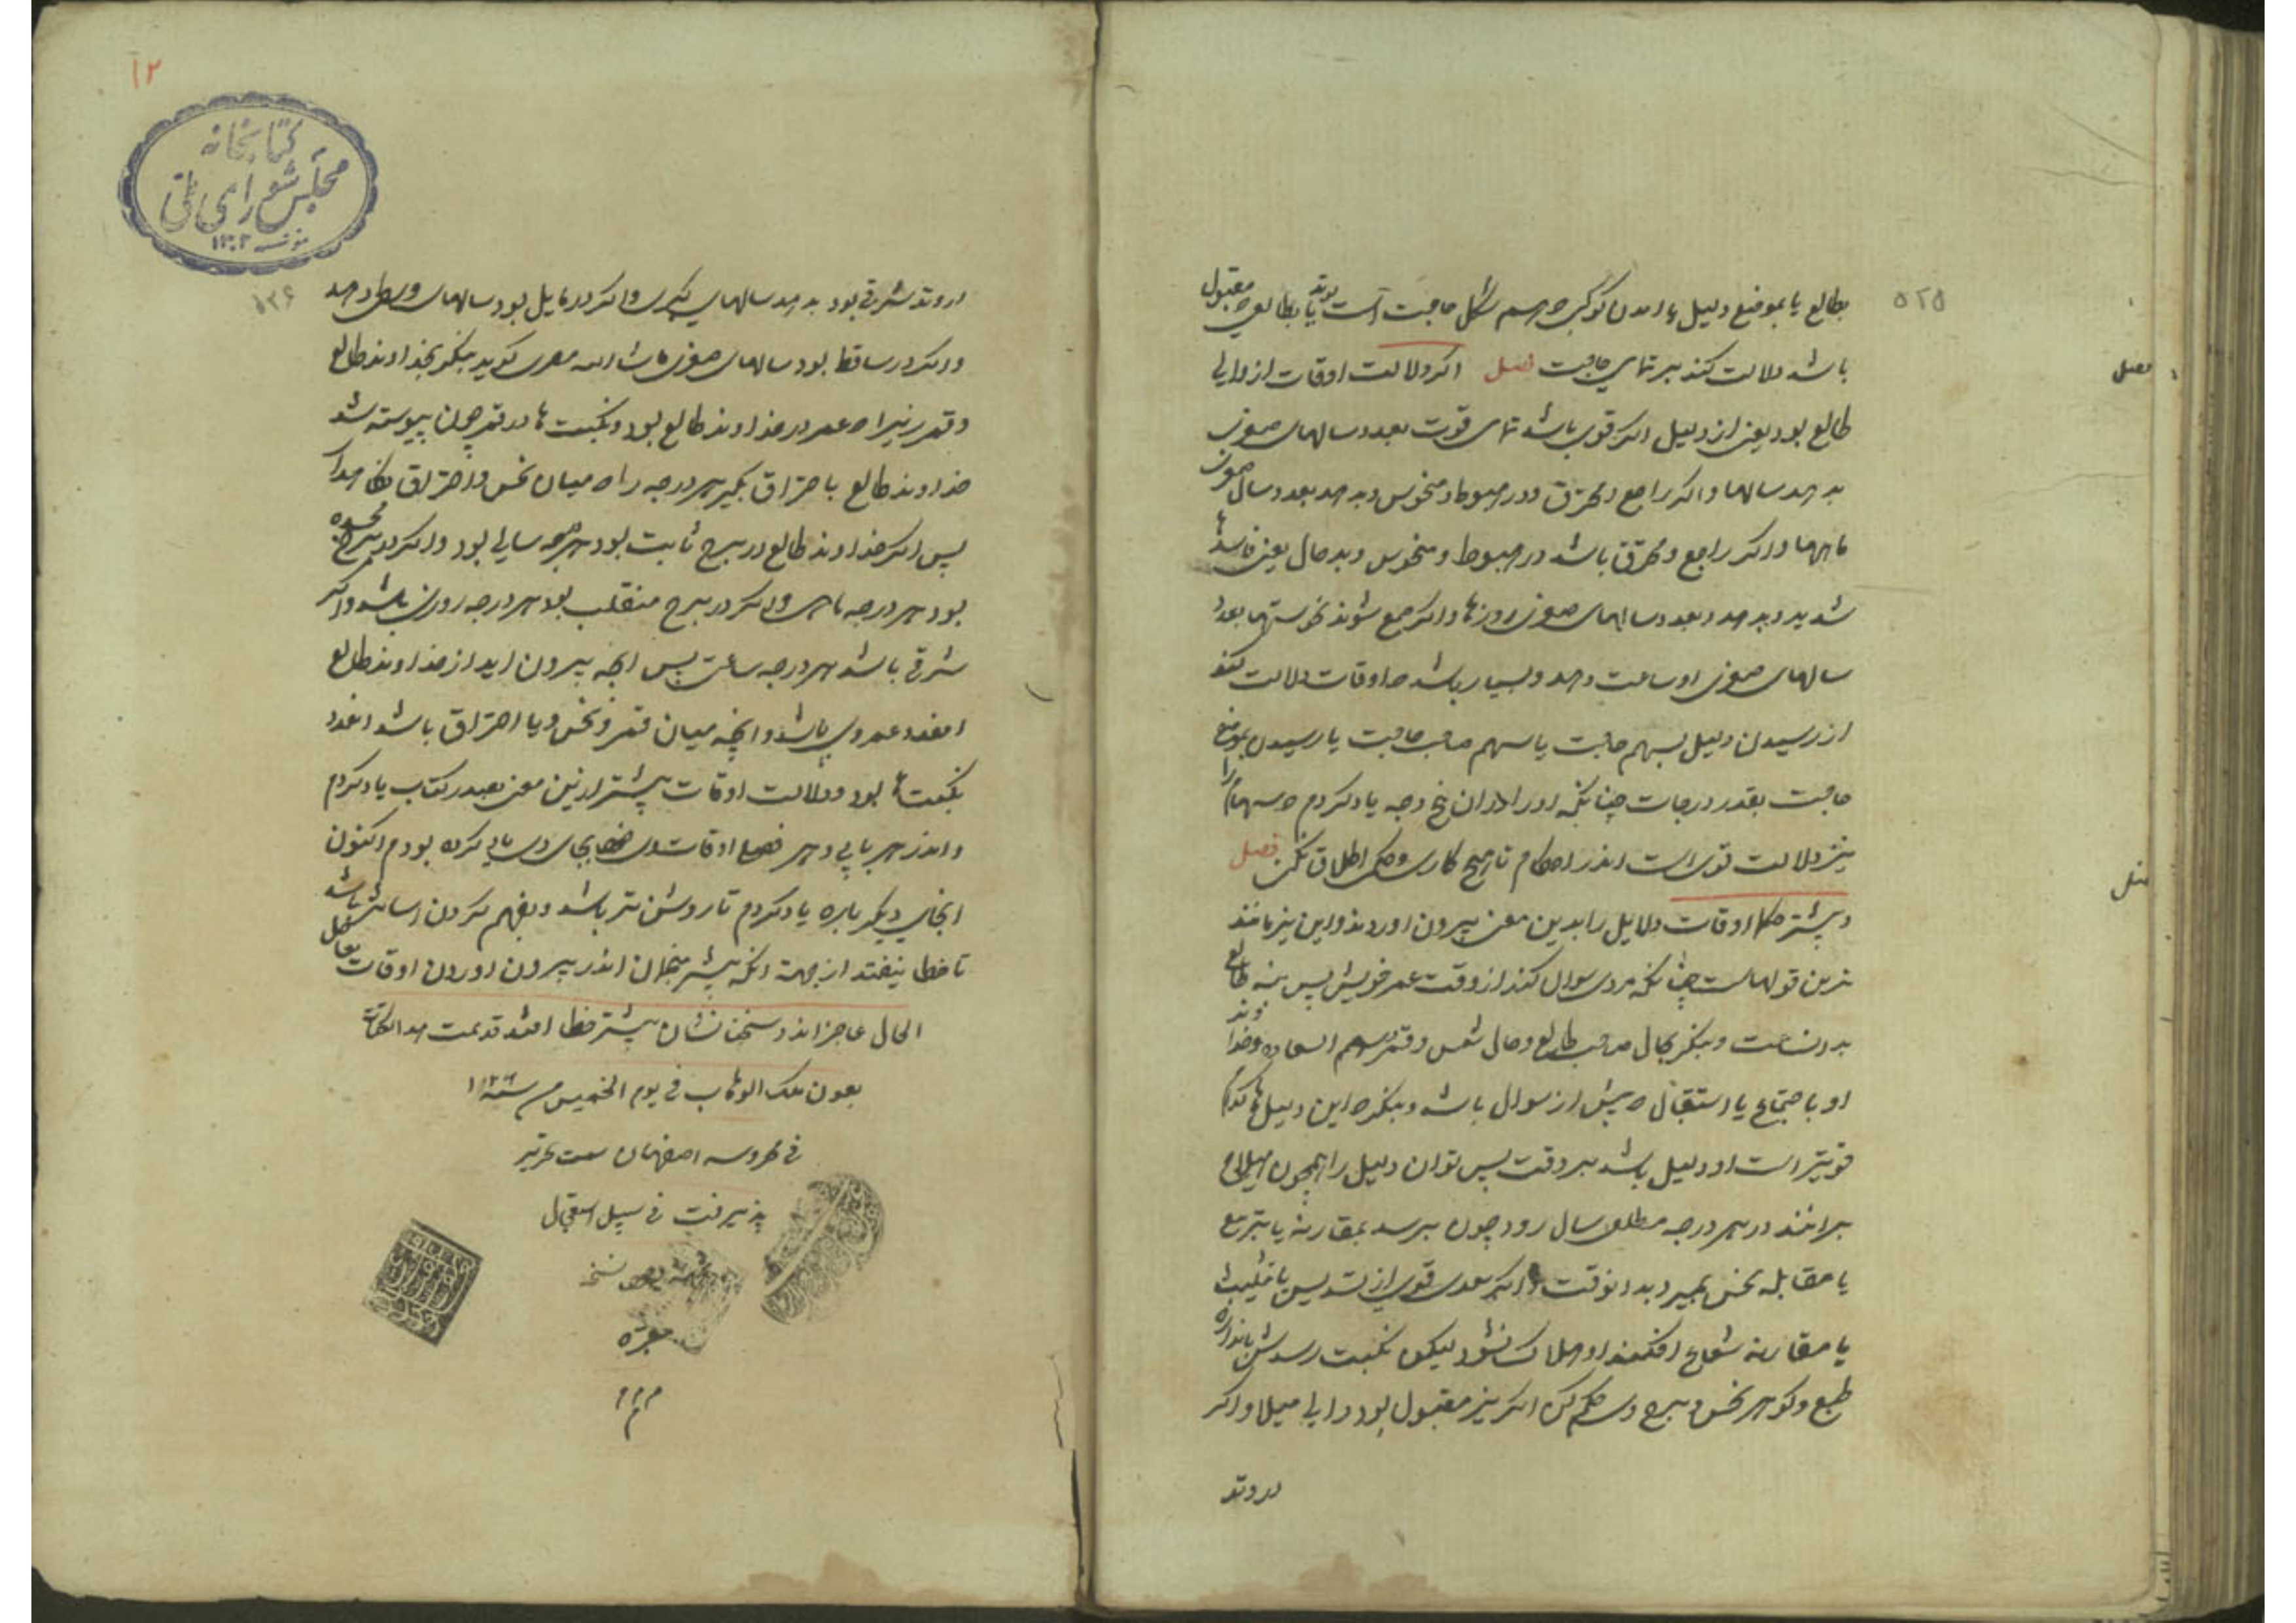 ۵۲۵
بطالع یا بموضع دلیل یا امدن کوکبی که رسم شکل حاجت است یا بطالع مقبول
باشد دلالت کند بر تمامی حاجت فصل اکر دلالت اوقات از والی
طالع بود یعنی از دلیل اکر قوی باشد تمامی قوت بعدد سالهای صغری
بدهد سالها و اکر راجع و محترق و در هبوط و منحوس و بدهد بعدد سال صغری
ماهها و اکر راجع و محترق باشد در هبوط و منحوس و بدحال یعنی فاسدها
شدید و بدهد بعدد سالهای صغری روزها و اکر جمع شوند نحوستها بعدد
سالهای صغری او ساعت دهد و بسیار باشد که اوقات دلالت کند
از رسیدن دلیل بسهم حاجت یا سهم صاحب حاجت یا رسیدن بموضع
حاجت بقدر درجات چنانکه اندران پنج وجه یاد کردم که سهام را
نیز دلالت قوی است اندر احکام تا هیچ کاری و حکم اطلاق نکنی فصل
و بیشتر حکما اوقات دلایل را بدین معنی بیرون اوردند و این نیز مانند
ترین قولهاست چنانکه مردی سوال کند از وقت عمر خویش پس بنه طالع
بدان ساعت و بنکر بحال صاحب طالع و حال شمس و قمر و سهم السعاده و خداوند
او باجتماع یا استقبال که پیش از سوال باشد و بنکر که این دلیلها کدام
قویتر است او دلیل باشد بر وقت پس تو ان دلیل را همچون هیلاج
برانند در هر درجه مطلع سال رود چون برسد بمقارنه یا بتربیع
یا مقابله نحس بمیرد بدانوقت و اکر سعدی قوی از تسدیس یا تثلیث
یا مقارنه شعاع افکند او هلاک نشود لیکن نکبت رسدش باندازه
طبع و کوهر نحس و برج وی حکم کن اکر نیز مقبول بود والی میلا و اکر
در وتد
فصل
۱۲
کتابخانه
مجلس شورای ملی
۱۳۰۲
۵۲۶
در وتد شرقی بود بدهد سالهای کبری و اکر در مایل بود سالهای وسطی دهد
و اکر در ساقط بود سالهای صغری ماشاالله مصری کوید بنکر بخداوند طالع
و قمر زیرا که عمر در خداوند طالع بود و نکبت ها در قمر چون پیوسته شد
خداوند طالع باحتراق بکیر هر درجه را که میان نحس و احتراق
پس اکر خداوند طالع در برج ثابت بود هر درجه سالی بود و اکر در برج
بود هر درجه ماهی و اکر در برج منقلب بود هر درجه روزی باشد و اکر
شرقی باشد هر درجه ساعتی پس انچه بیرون اید از خداوند طالع
انقدر عمر وی باشد و انچه میان قمر و نحس و یا احتراق باشد انقدر
نکبت ها بود و دلالت اوقات پیشتر ازین معنی بصدر کتاب یاد کردم
و اندر هر بابی و هر فصلی اوقات بجای وی یاد کرده بودم اکنون
اینجای دیکر باره یاد کردم تا روشن تر باشد و بفهم کردن اسانتر باشد
تا خطا نیفتد از جهة انکه بیشتر منجمان اندر بیرون اوردن اوقات
الحال عاجز اند و سخنانشان بیشتر خطا افتد قد تمت هذا الکتاب
بعون ملک الوهاب فی یوم الخمیس سنه ۱۱۲۶
فی محروسه اصفهان سمت تحریر
پذیرفت فی سبیل استعجال
م م م
م